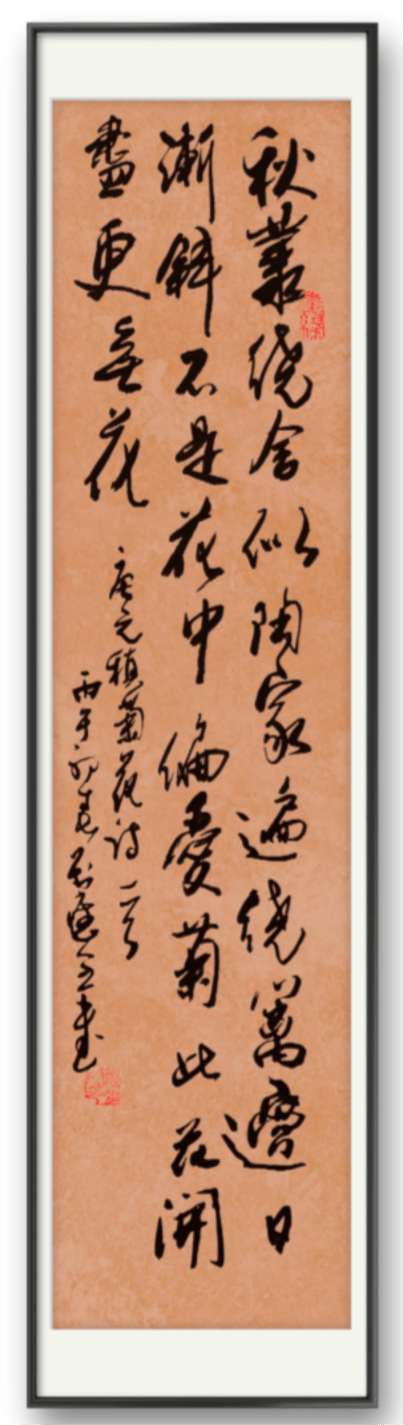 秋叢繞舍似陶家遍繞籬邊日
漸斜不是花中偏愛菊此花開
盡更無花
唐元稹菊花詩一首
丙午初春